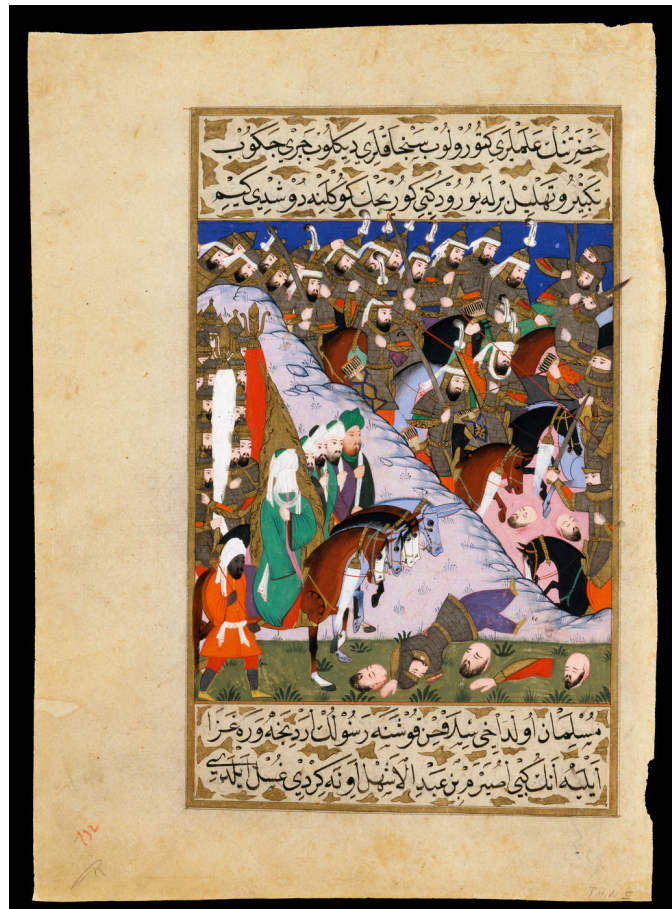 حضرتك علملرى كتورولوب سنجاقلرى ديكلوب چرى چكوب
تكبير و تهليل برله يورودكنى كوريجك كوكلنه دوشدى كيم
مسلمان اولدى سلاحن قوشنه رسولك اردنجه وره غزا
ايليه انك كبى اصيرم بن عبد الاشهل اونه كردى غسل ايلدى
132
R